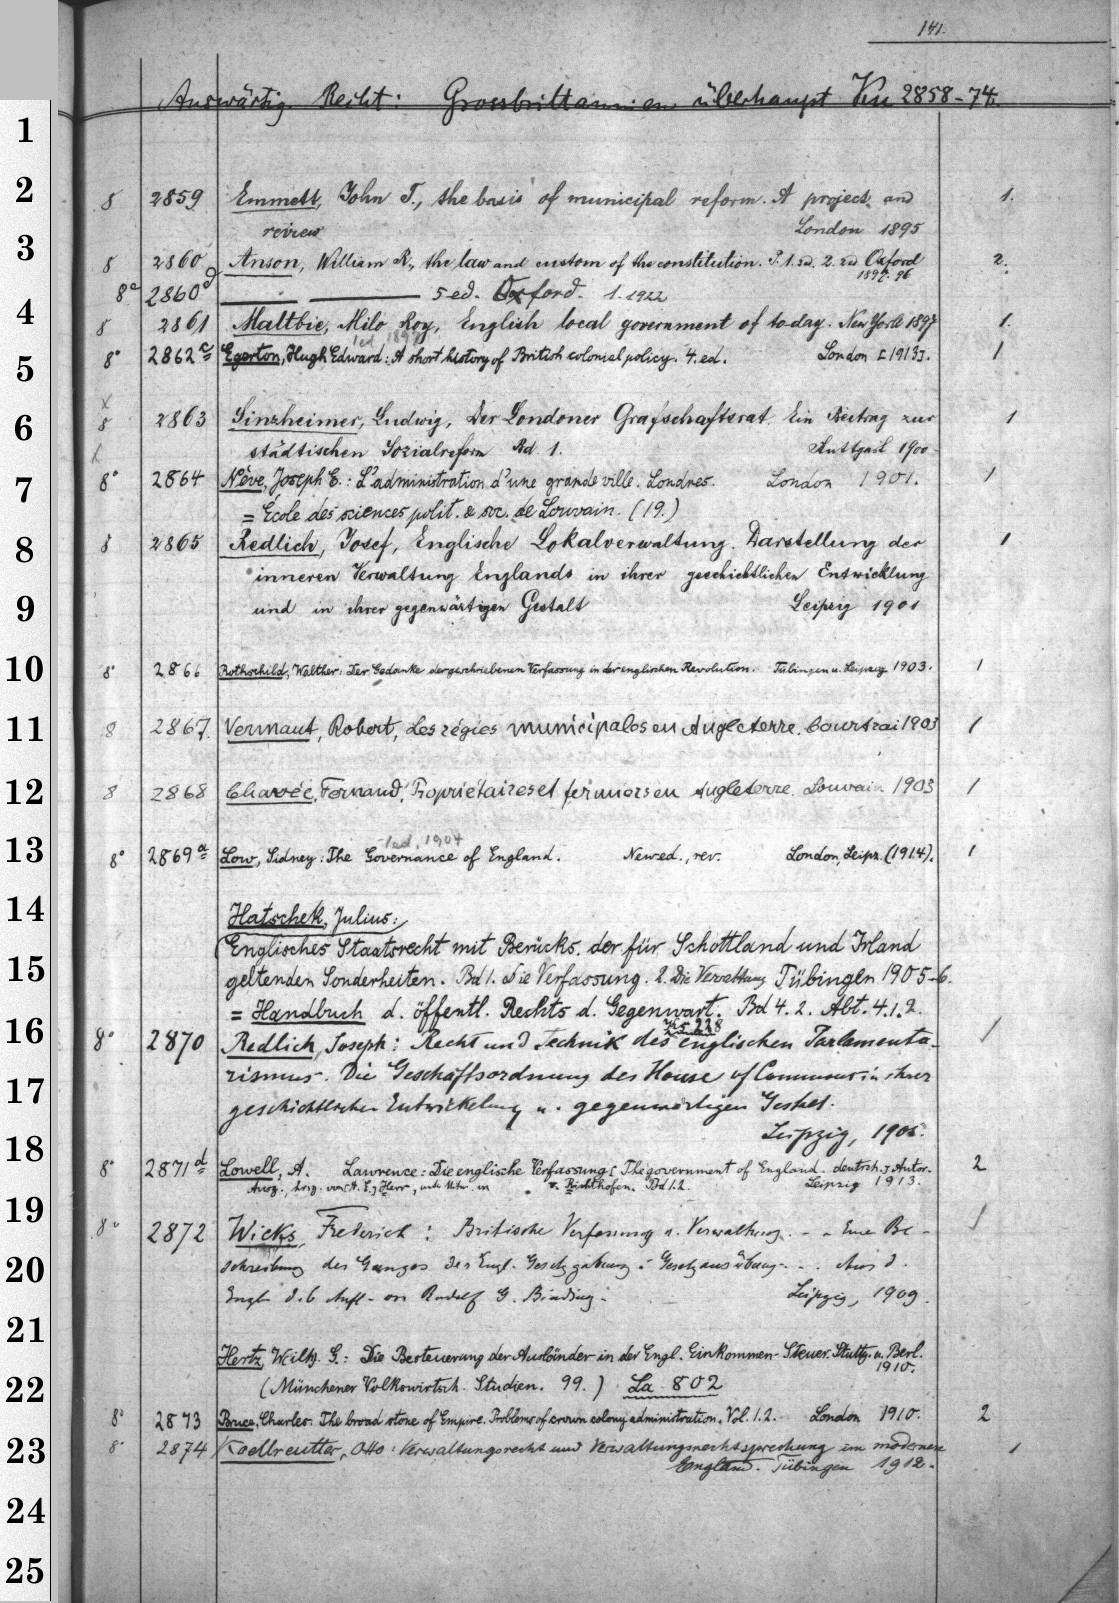 141.
Auswärtig. Recht: Grossbrittannien überhaupt Kn 2858-74.
8 2859 Emmett, John T., the basis of municipal reform. A project and 1.
review London 1895
8 2860 Anson, William R., the law and custom of the constitution. P. 1. ed. 2. ed Oxford 2.
1892. 96
8° 2860d — — 5 ed. Oxford. 1. 1922
8 2861 Maltbie, Milo Roy, English local government of to-day. New York 1897 1.
1ed 1897
8° 2862c Egerton, Hugh Edward: A short history of British colonial policy. 4. ed. London [1913]. 1
x
8 2863 Sinzheimer, Ludwig, Der Londoner Grafschaftsrat. Ein Beitrag zur 1
städtischen Sozialreform Bd 1. Stuttgart 1900
8° 2864 Nève, Joseph E.: L'administration d'une grande ville. Londres. London 1901. 1
= École des sciences polit. & soc. de Louvain. (19.)
8 2865 Redlich, Josef, Englische Lokalverwaltung. Darstellung der 1
inneren Verwaltung Englands in ihrer geschichtlichen Entwicklung
und in ihrer gegenwärtigen Gestalt Leipzig 1901
8° 2866 Rothschild, Walther: Der Gedanke der geschriebenen Verfassung in der englischen Revolution. Tübingen u. Leipzig 1903. 1
8 2867 Vermaut, Robert, Les régies municipales en Angleterre. Courtrai 1903 1
8 2868 Chavée, Fernand, Propriétaires et fermiers en Angleterre. Louvain 1903 1
1ed. 1904
8° 2869a Low, Sidney: The Governance of England. New ed., rev. London, Leipz. (1914). 1
Hatschek, Julius:
Englisches Staatsrecht mit Berücks. der für Schottland und Irland
geltenden Sonderheiten. Bd 1. Die Verfassung. 2. Die Verwaltung Tübingen 1905-6.
= Handbuch d. öffentl. Rechts d. Gegenwart. Bd 4. 2. Abt. 4.1.2.
8° 2870 Redlich, Joseph: Recht und Technik des englischen Parlamenta- 1
rismus. Die Geschäftsordnung des House of Commons in ihrer
geschichtlichen Entwickelung u. gegenwärtigen Gestalt.
Leipzig, 1905.
8° 2871d Lowell, A. Lawrence: Die englische Verfassung [The government of England. deutsch.] Autor. 2
Ausg., hrsg. von (A. E.) Herr, unt. Mitw. v. Richthofen. Bd 1.2. Leipzig 1913.
8° 2872 Wicks, Frederick: Britische Verfassung u. Verwaltung. - - Eine Be- 1
schreibung des Ganges der Engl. Gesetzgebung u. Gesetzausübung - . . Aus d.
Engl. d. 6 Aufl. von Rudolf G. Binding. Leipzig, 1909.
Hertz, Wilh. G.: Die Besteuerung der Ausländer in der Engl. Einkommen-Steuer. Stuttg. u. Berl.
1910.
(Münchener Volkswirtsch. Studien. 99.) La 802
8° 2873 Bruce, Charles: The broad stone of Empire. Problems of crown colony administration. Vol. 1.2. London 1910. 2
8° 2874 Koellreutter, Otto: Verwaltungsrecht und Verwaltungsrechtsprechung im modernen 1
England. Tübingen 1912.
1
2
3
4
5
6
7
8
9
10
11
12
13
14
15
16
17
18
19
20
21
22
23
24
25